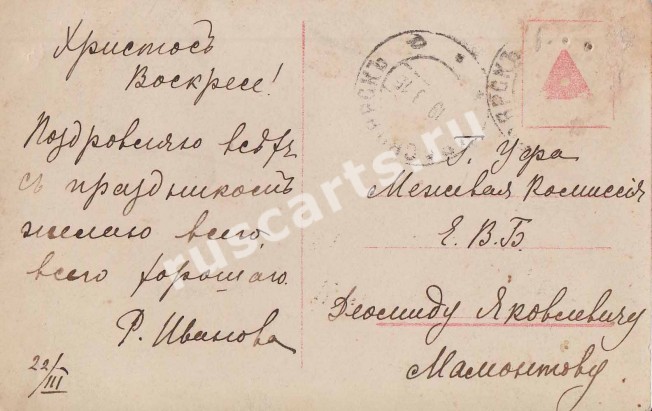 Христосъ
Воскресе!
Поздровляю всѣхъ
съ праздникомъ
желаю всего,
всего хорошаго.
Р. Иванова
22/III
Г. Уфа
Межевая Комиссія
Е. В. Б.
Деомиду Яковлевичу
Мамонтову.
ruscarts.ru